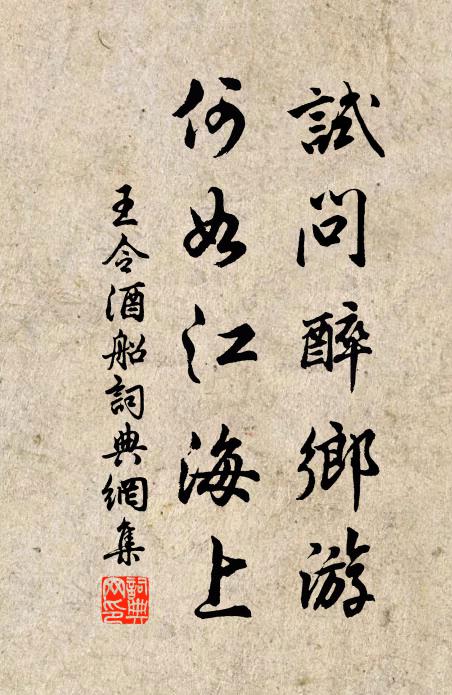 試問醉鄉游
何如江海上
王令酒船詞典網集
詞典網印